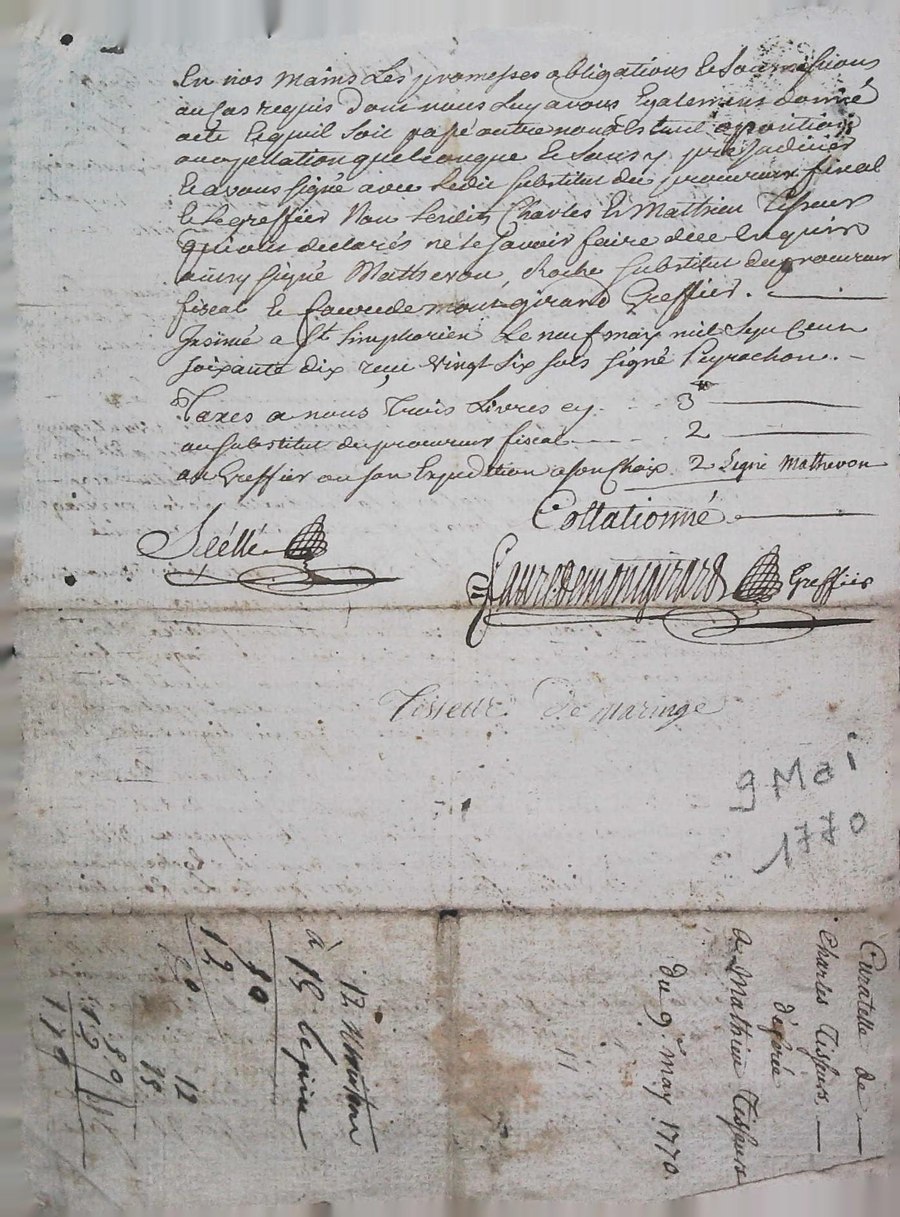 En nos mains Les promesses obligations & soumissions
au cas requis dont nous Luy avons Egalement donné
acte Et quil soit passé outre nonobstant opposition
ou appellation quelconque & sans y prejudicier
Et avons signé avec Ledit substitut du procureur fiscal
& Le greffier Non Lesdits Charles & Mathieu Tisseurs
qui ont declarés ne le scavoir faire de ce Enquis
ainsy signé Mathevon, Roche substitut du procureur
fiscal & faure de montgirard Greffier.
Insinué a St Simphorien Le neuf may mil sept cent
soixante dix reçu vingt six sols signé Peyrachon.
Taxes a nous Trois Livres cy 3
au substitut du procureur fiscal 2
au Greffier ou son Expedition a son Choix 2 Signé Mathevon
Collationné
Scéllé
faure de montgirard Greffier
Tisseur de maringe
9 Mai
1770
Curatelle de
Charles Tisseurs
déférée
a Mathieu Tisseurs
du 9. may 1770.
12
à 15